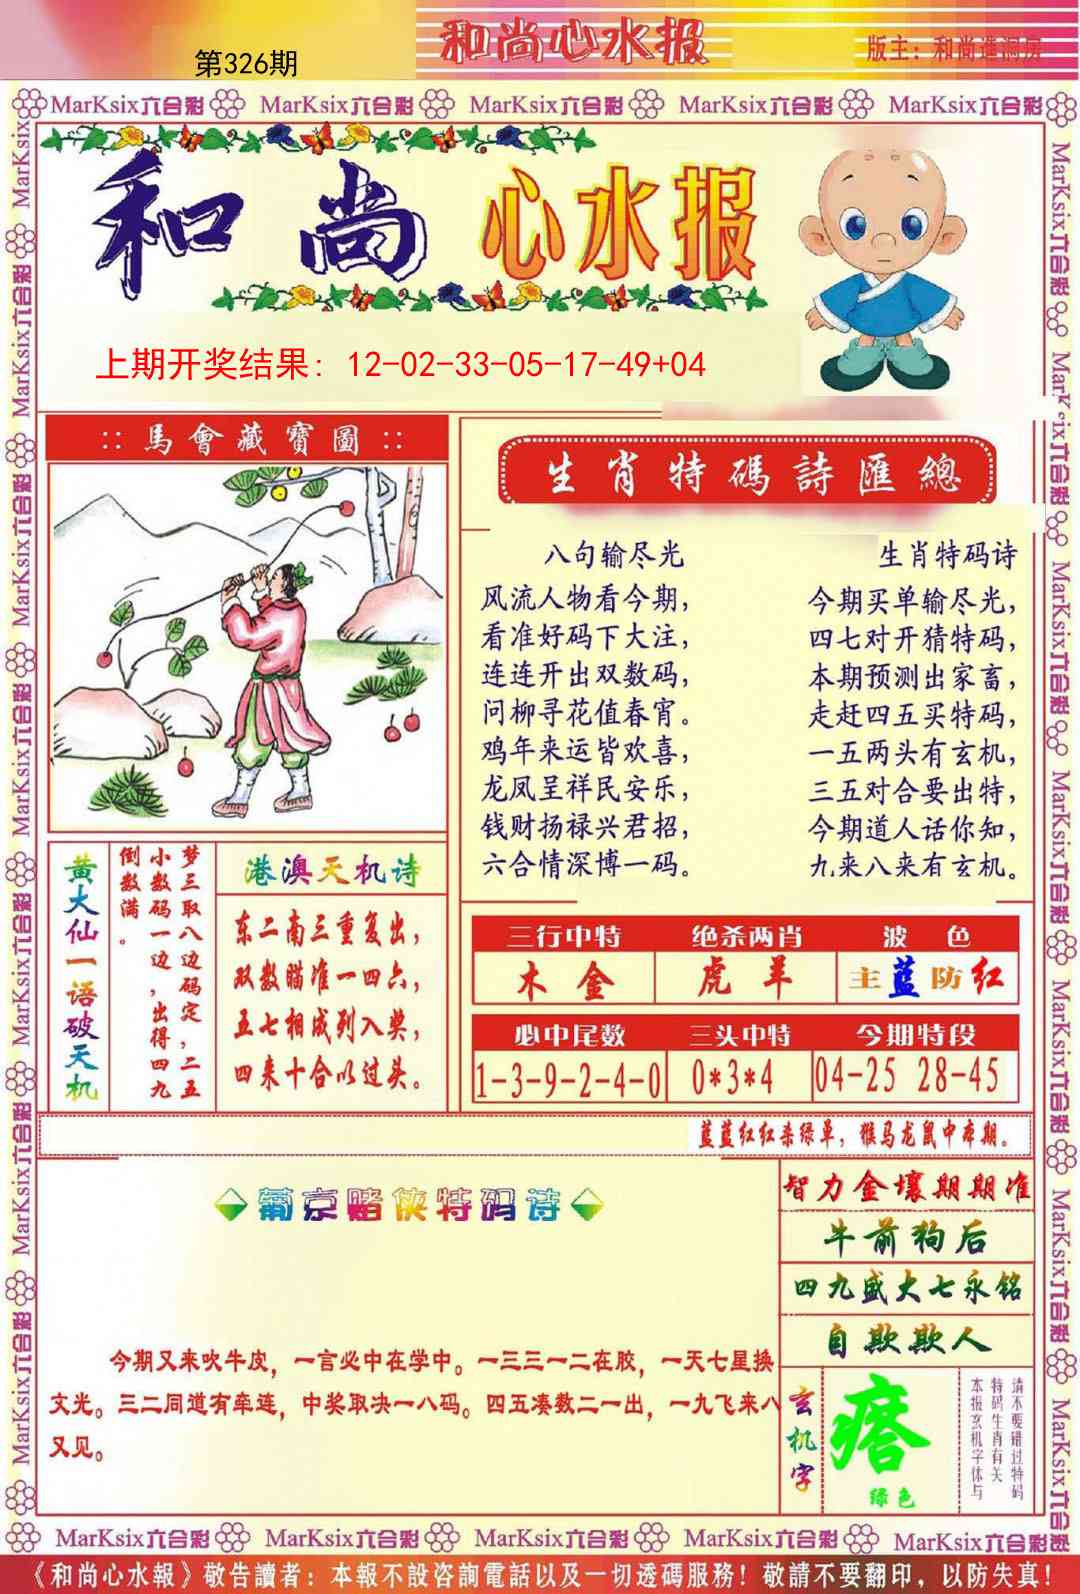 和尚心水报
第326期
版主：和尚進洞房
MarKsix六合彩 MarKsix六合彩 MarKsix六合彩 MarKsix六合彩 MarKsix六合彩
和尚心水报
上期开奖结果：12-02-33-05-17-49+04
::馬會藏寶圖::
生肖特碼詩匯總
八句输尽光
风流人物看今期，
看准好码下大注，
连连开出双数码，
问柳寻花值春宵。
鸡年来运皆欢喜，
龙凤呈祥民安乐，
钱财扬禄兴君招，
六合情深博一码。
生肖特码诗
今期买单输尽光，
四七对开猜特码，
本期预测出家畜，
走赶四五买特码，
一五两头有玄机，
三五对合要出特，
今期道人话你知，
九来八来有玄机。
黄大仙一语破天机
梦三取八边码定，二五
小数码一边，出得四九
倒数满。
港澳天机诗
东二南三重复出，
双数瞄准一四六，
五七相成列入奖，
四来十合以过头。
三行中特 绝杀两肖 波色
木金 虎羊 主蓝防红
必中尾数 三头中特 今期特段
1-3-9-2-4-0 0*3*4 04-25 28-45
蓝蓝红红杀绿单，猴马龙鼠中本期。
葡京赌侠特码诗
今期又来吹牛皮，一言必中在学中。一三三一二在胶，一天七星换
文光。三二同道有牵连，中奖取决一八码。四五凑数二一出，一九飞来八
又见。
智力金壤期期准
牛前狗后
四九盛大七永铭
自欺欺人
玄机字
瘩
绿色
请不要错过特码
特码生肖有关
本报玄机字体与
MarKsix六合彩 MarKsix六合彩 MarKsix六合彩 MarKsix六合彩 MarKsix六合彩
《和尚心水報》敬告讀者：本報不設咨詢電話以及一切透碼服務！敬請不要翻印，以防失真！